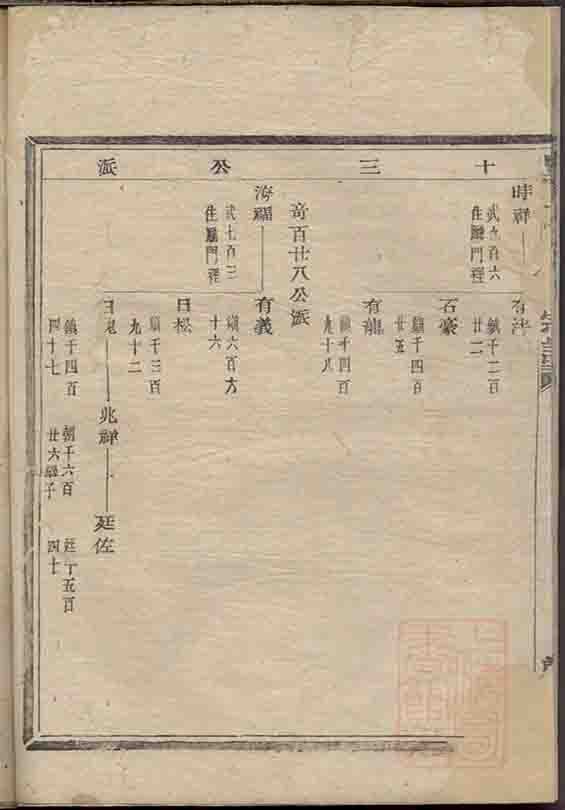 十三公派
時禪
武五百六
住廳門裡
有汗
鎮千二百
廿二
石豪
鎮千四百
廿五
有龍
鎮千四百
九十八
奇百廿八公派
海福
武七百三
住廳門裡
有義
鎮六百六
十六
日松
鎮千三百
九十二
日
鎮千四百
四十七
兆禪
朝千六百
廿六 子
廷佐
廷千五百
四十